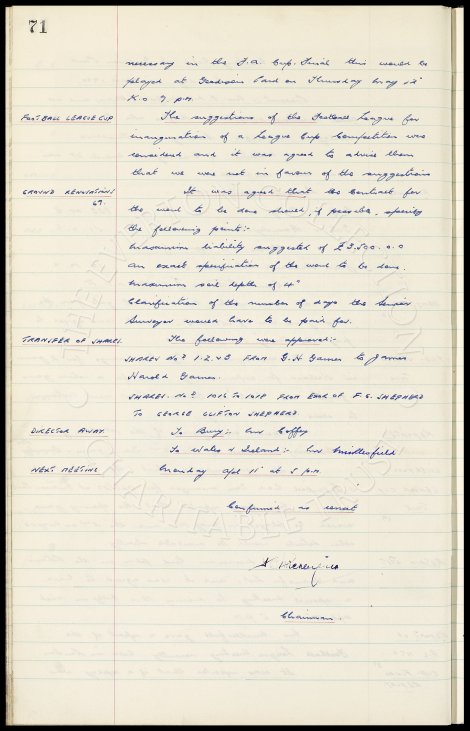 71
necessary in the F.A. Cup. Final this would be
played at Goodison Park on Thursday May 12"
K.O. 7 p.m.
FOOTBALL LEAGUE CUP The suggestions of the Football League for
inauguration of a League Cup Competition was
considered and it was agreed to advise them
that we were not in favour of the suggestions
GROUND RENOVATIONS It was agreed that the Contract for
the work to be done should, if possible, specify
the following points:-
Maximum liability suggested of £3,500.0.0
An exact specification of the work to be done.
Maximum soil depths of 4"
Clarification of the number of days the
Surveyor would have to be paid for.
TRANSFER OF SHARES. The following were approved:-
SHARES Nos 1.2.&3 FROM G.H Games to James
Harold Games.
SHARES. Nos 1016 TO 1018 FROM EXOR OF F.G. SHEPHERD
TO GEORGE CLIFTON SHEPHERD.
DIRECTOR AWAY. To Bury:- Mr Coffey
To Wales & Ireland:- Mr Micklesfield
NEXT MEETING Monday Apl 11" at 5 p.m
Confirmed as correct
Chairman.
THE EVERTON COLLECTION
CHARITABLE TRUST